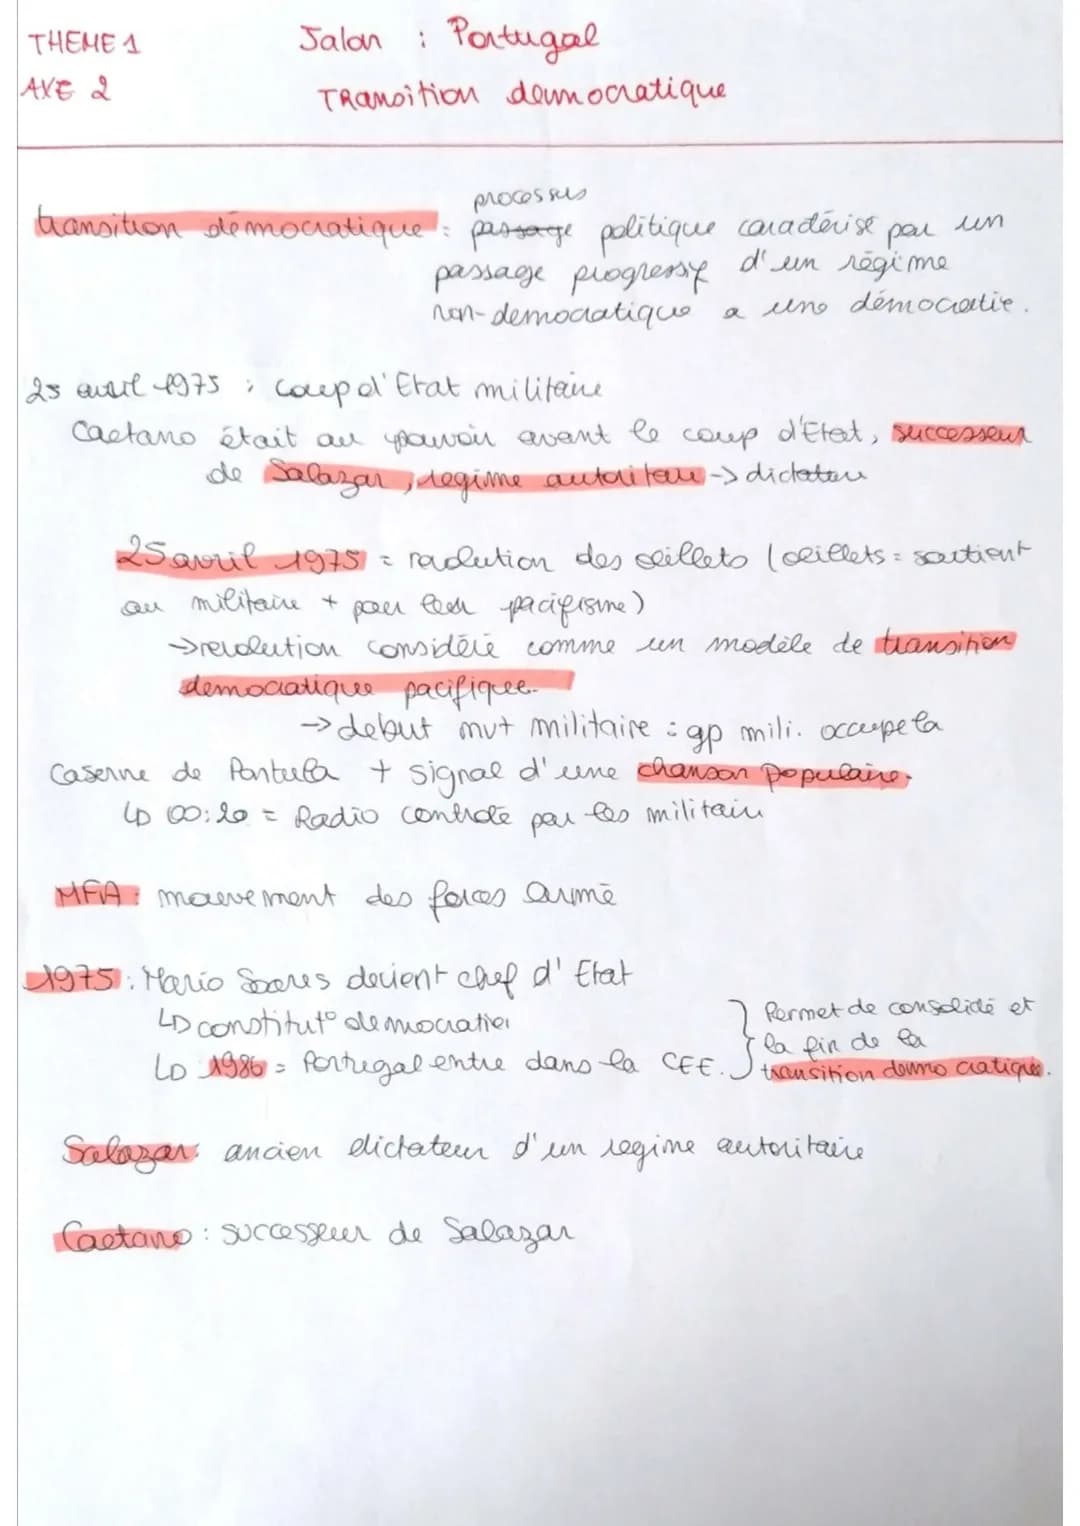 THEME 1
Jalon : Portugal
AXE 2
TRansition democratique
processus
transition démocratique : passage politique caractérisé par un
passage progressif d'un régime
non-democratique a une démocratie.
25 avril 1975 : Coup d'Etat militaire
Caetano était au pouvoir avant le coup d'Etat, successeur
de Salazar, regime autoritaire -> dictateur
25 avril 1975 = révolution des oeillets (oeillets = soutient
au militaire + pour leur pacifisme)
-> revolution considéré comme un modèle de transition
democratique pacifique.
-> debut mvt militaire : gp mili. occupe la
Caserne de Pontula + signal d'une chanson populaire.
↳ 00:20 = Radio controlé par les militaire
MFA : mouvement des forces armé
1975 : Mario Soares devient chef d'Etat
↳ constitut° democratie
↳ 1986 = Portugal entre dans la CEE.
} Permet de consolidé et
la fin de la
transition democratique.
Salazar : ancien dictateur d'un regime autoritaire
Caetano : successeur de Salazar